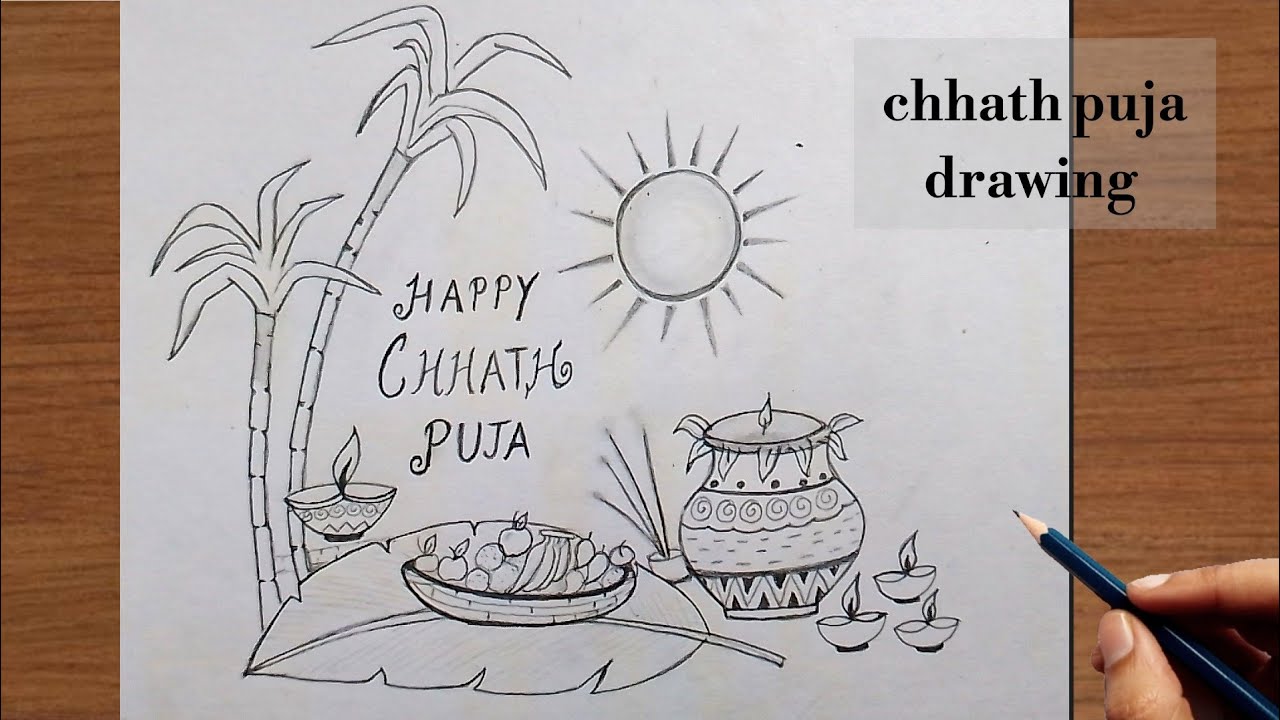 chhath puja
drawing
HAPPY
CHHATH
PUJA